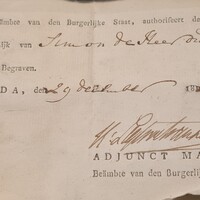 Beämbte van den Burgerlijke Staat, authoriseert de
lijk van Simon de Heer
Begraven.
DA, den 29 december 18
ADJUNCT MA
Beämbte van den Burgerlij